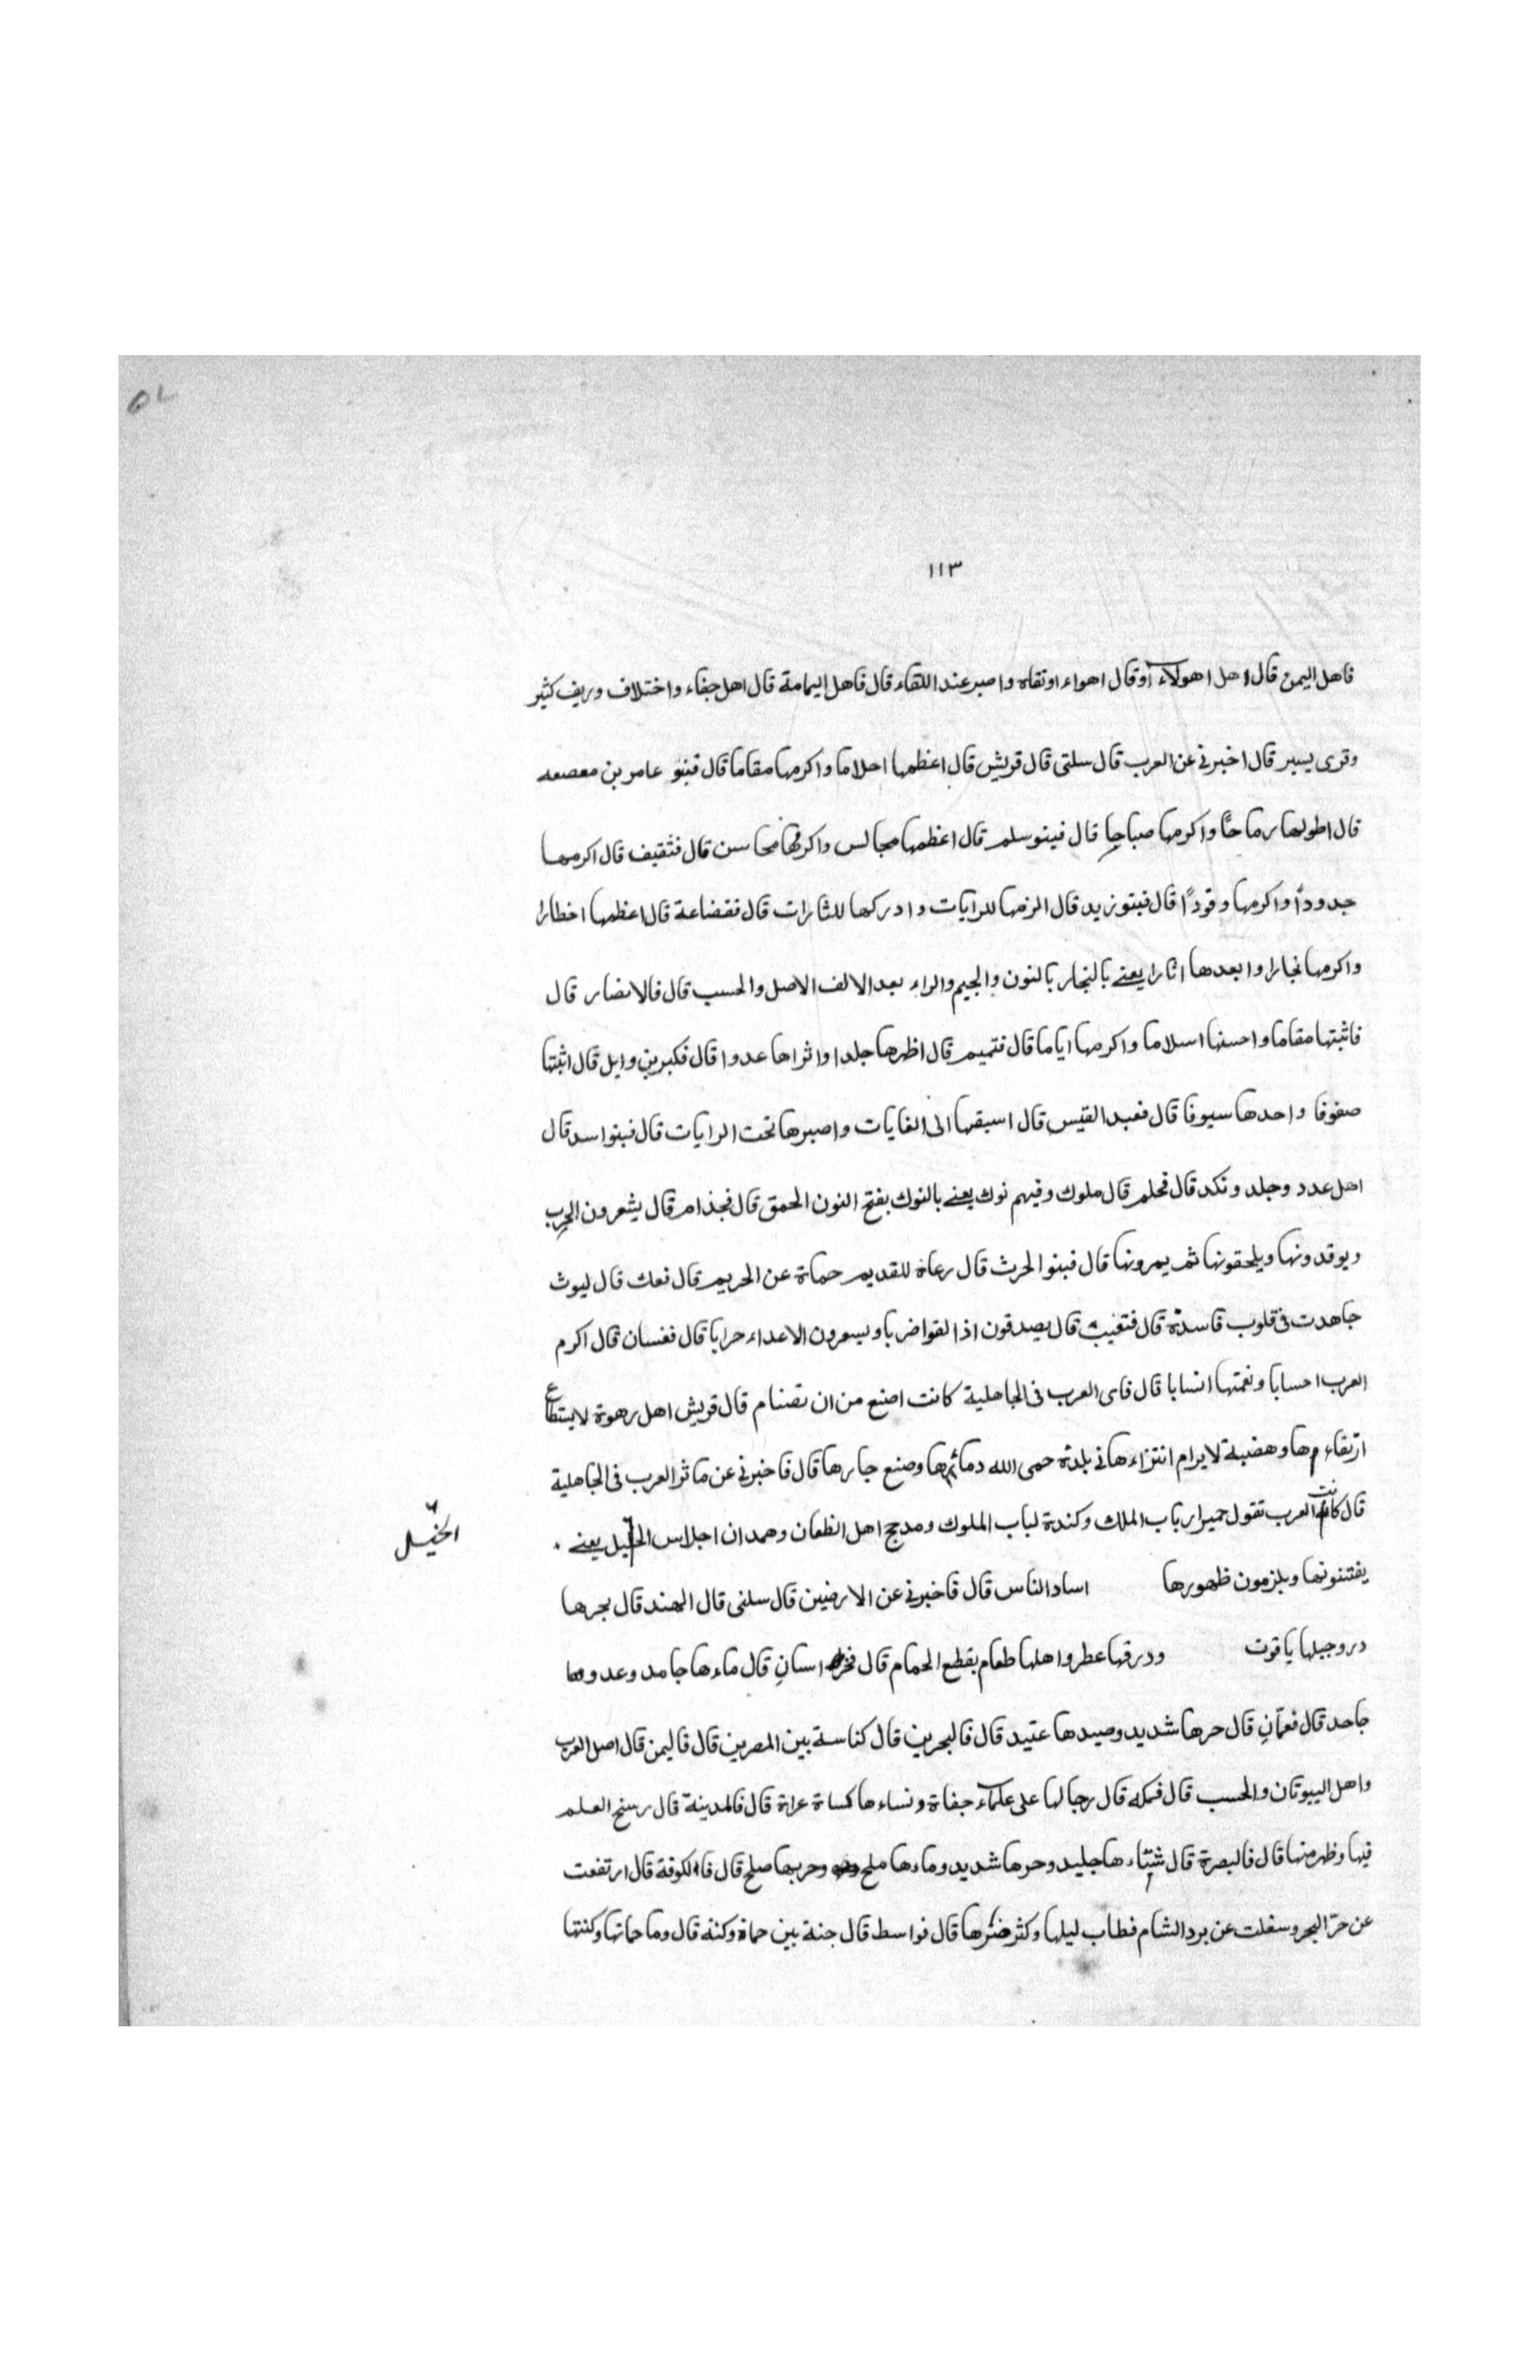 ١١٣
فاهل اليمن قال اهل اهولاء اوقال اهواء اوتقاه واصبر عند اللقاء قال فاهل اليمامة قال اهل جفاء واختلاف وريف كثير
وقرى يسير قال اخبرني عن العرب قال سلنى قال قريش قال اعظمها احلاما واكرمها مقاما قال فبنو عامر بن معصعه
قال اطولها رماحًا واكرمها صباحا قال فبنو سلم قال اعظمها مجالس واكرمها محاسن قال فثقيف قال اكرمها
جدودًا واكرمها وقودًا قال فبنو زيد قال الزمها للرايات وادركها للثارات قال فقضاعة قال اعظمها اخطارا
واكرمها نجارا وابعدها اثارا يعنے بالنجار بالنون والجيم والراء بعد الالف الاصل والحسب قال فالانصار قال
فاثبتها مقاما واحسنها اسلاما واكرمها اياما قال فتميم قال اظهرها جلدا واثراها عدوا قال فكبر بن وايل قال اثبتها
صفوفا واحدها سيوفا قال فعبد القيس قال اسبقها الى الغايات واصبرها تحت الرايات قال فبنو اسد قال
اهل عدد وجلد ونكد قال فحلم قال ملوك وفيهم نوك يعنے بالنوك بفتح النون الحمق قال فجذام قال يشعرون الحرب
ويوقدونها ويلحقونها ثم يمرونها قال فبنو الحرث قال رعاة للقديم حماة عن الحريم قال فعك قال ليوث
جاهدت فى قلوب قاسدة قال فتغيب قال يصدقون اذا لقوا ضربا ويسعرون الاعداء حرابا قال فغسان قال اكرم
العرب احسابا ونغمتها انسابا قال فاى العرب فى الجاهلية كانت اصنع من ان تضنام قال قريش اهل رهوة لايستطاع
ارتقاءها وهضبة لايرام انتزاءها فى بلدة حمى الله دمائها وصنع جارها قال فاخبرني عن ماثر العرب فى الجاهلية
قال كانت العرب تقول حمير ارباب الملك وكندة لباب الملوك ومدجج اهل الظعان وهمدان اجلاس الخيل يعنے
الخيل
يفتنونها ويلزمون ظهورها اساد الناس قال فاخبرني عن الارضين قال سلنى قال الهند قال بحرها
در وجبلها ياقوت ودرقها عطر واهلها طعام بقطع الحمام قال فخراسان قال ماءها جامد وعدوها
جاحد قال فعمّان قال حرها شديد وصيدها عتيد قال فالبحرين قال كناسة بين المصرين قال فاليمن قال اصل العرب
واهل البيوتان والحسب قال فمكه قال رجالها على علماء جفاة ونساءها كساة عراة قال فالمدينة قال رسخ العلم
فيها وظهر منها قال فالبصرة قال شتاءها جليد وحرها شديد وماءها ملح وحربها صلح قال فالكوفة قال ارتفعت
عن حرّ البحر وسفلت عن برد الشام فطاب ليلها وكثر خيرها قال فواسط قال جنة بين حماة وكنة قال وما حماتها وكنتها